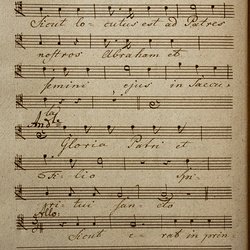 Sicut lo - cutus est ad Patres
nostros Abraham et
semini ejus in saecu -
la
And:te
Gloria Patri et
Filio Spi -
ritui san - cto
Allo:
Sicut e - rat in prin -